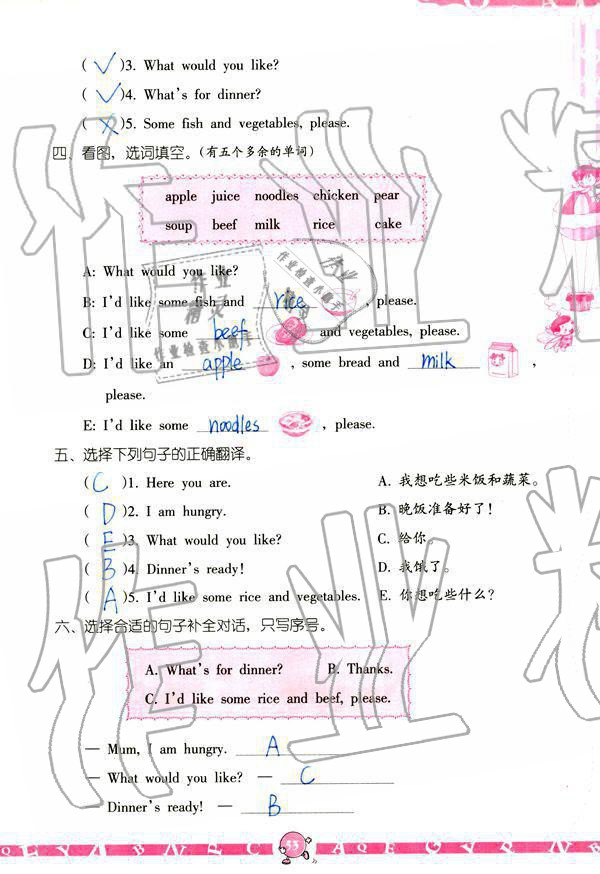 ( √ )3. What would you like?
( √ )4. What's for dinner?
( × )5. Some fish and vegetables, please.
四、看图，选词填空。(有五个多余的单词)
apple juice noodles chicken pear
soup beef milk rice cake
A: What would you like?
B: I'd like some fish and rice , please.
C: I'd like some beef and vegetables, please.
D: I'd like an apple , some bread and milk ,
please.
E: I'd like some noodles , please.
五、选择下列句子的正确翻译。
( C )1. Here you are. A. 我想吃些米饭和蔬菜。
( D )2. I am hungry. B. 晚饭准备好了!
( E )3. What would you like? C. 给你。
( B )4. Dinner's ready! D. 我饿了。
( A )5. I'd like some rice and vegetables. E. 你想吃些什么?
六、选择合适的句子补全对话，只写序号。
A. What's for dinner? B. Thanks.
C. I'd like some rice and beef, please.
— Mum, I am hungry. A
— What would you like? — C
Dinner's ready! — B
53